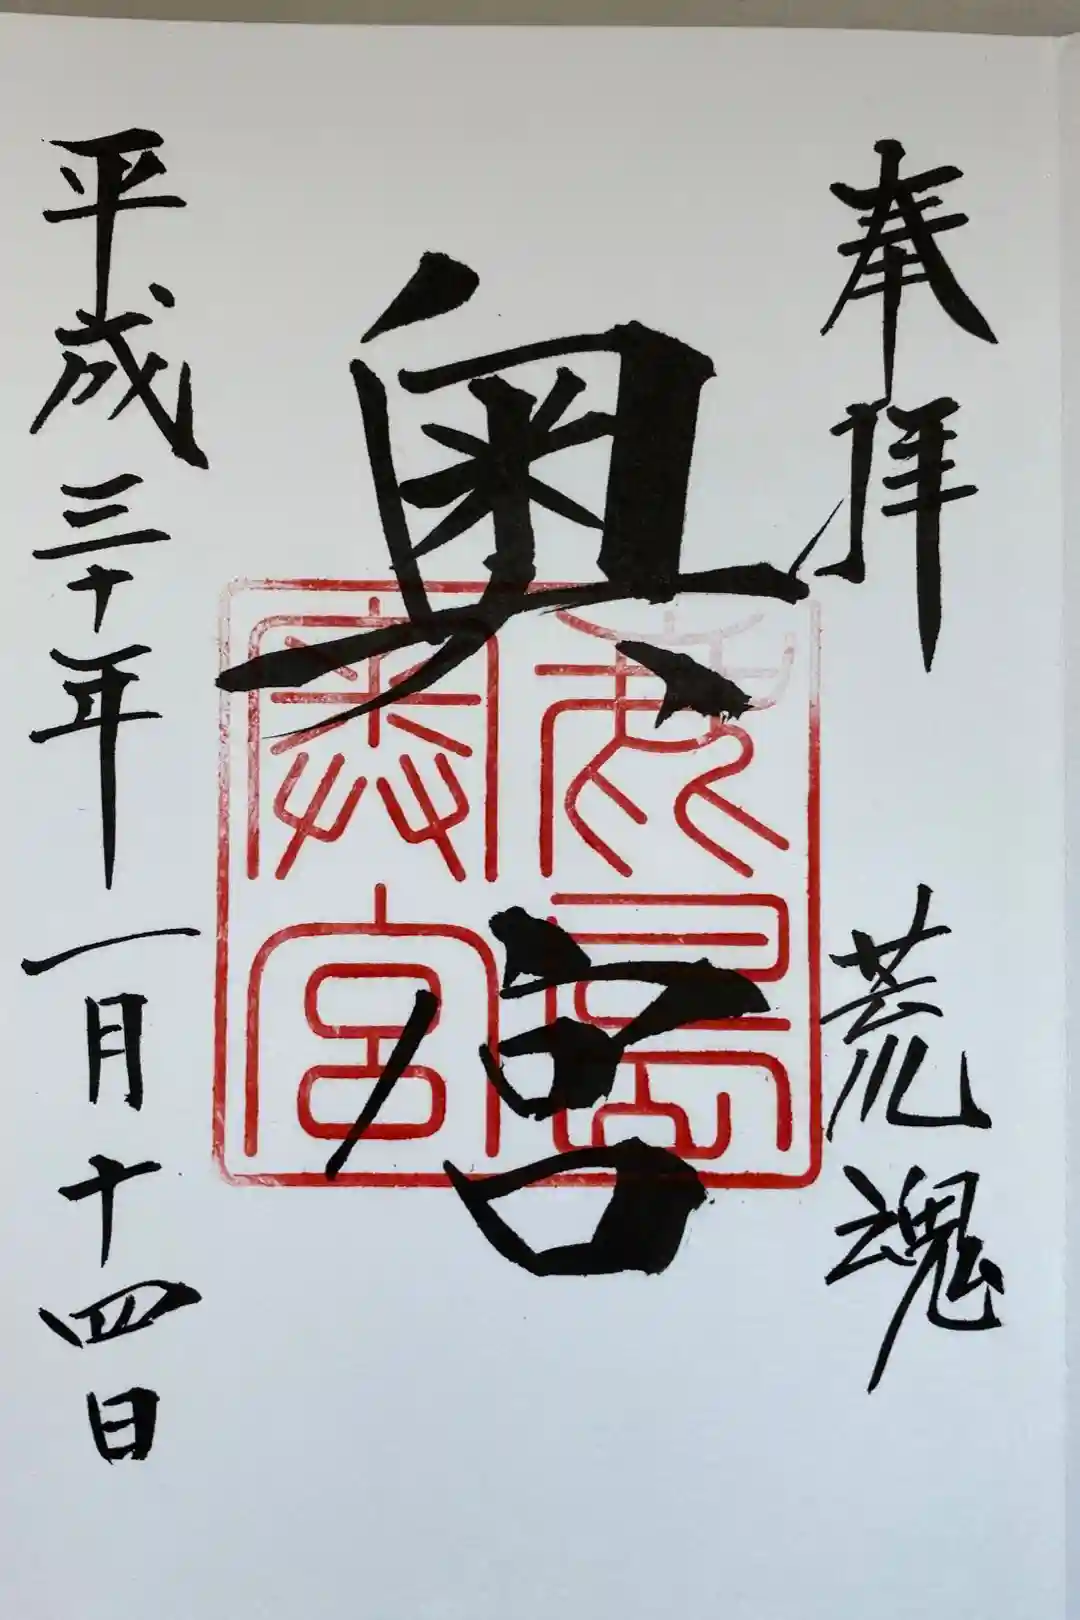 奉拝 荒魂
奥宮
鹿島奥宮
平成三十年一月十四日